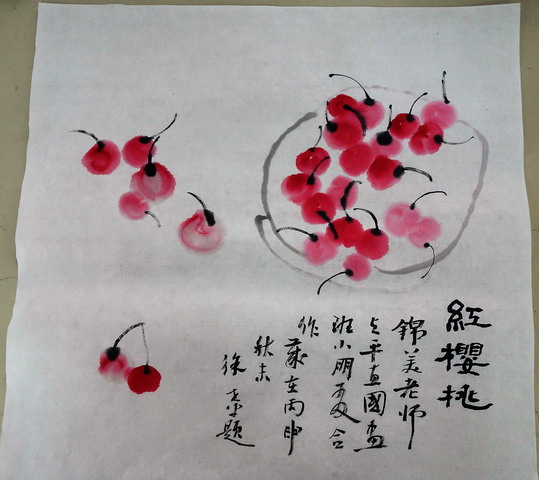 紅櫻桃
錦美老师
与平直國畫
班小朋友合
作歲在丙申
秋末
徐題